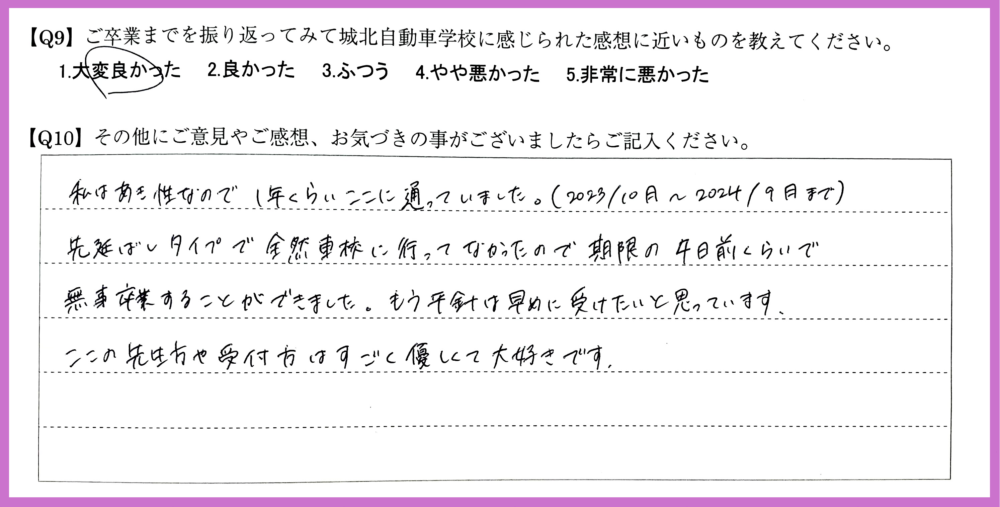 【Q9】ご卒業までを振り返ってみて城北自動車学校に感じられた感想に近いものを教えてください。
1.大変良かった 2.良かった 3.ふつう 4.やや悪かった 5.非常に悪かった
【Q10】その他にご意見やご感想、お気づきの事がございましたらご記入ください。
私はあき性なので1年くらいここに通っていました。(2023/10月〜2024/9月まで)
先延ばしタイプで全然車校に行ってなかったので期限の4日前くらいで
無事卒業することができました。もう平針は早めに受けたいと思っています.
ここの先生方や受付方はすごく優しくて大好きです.